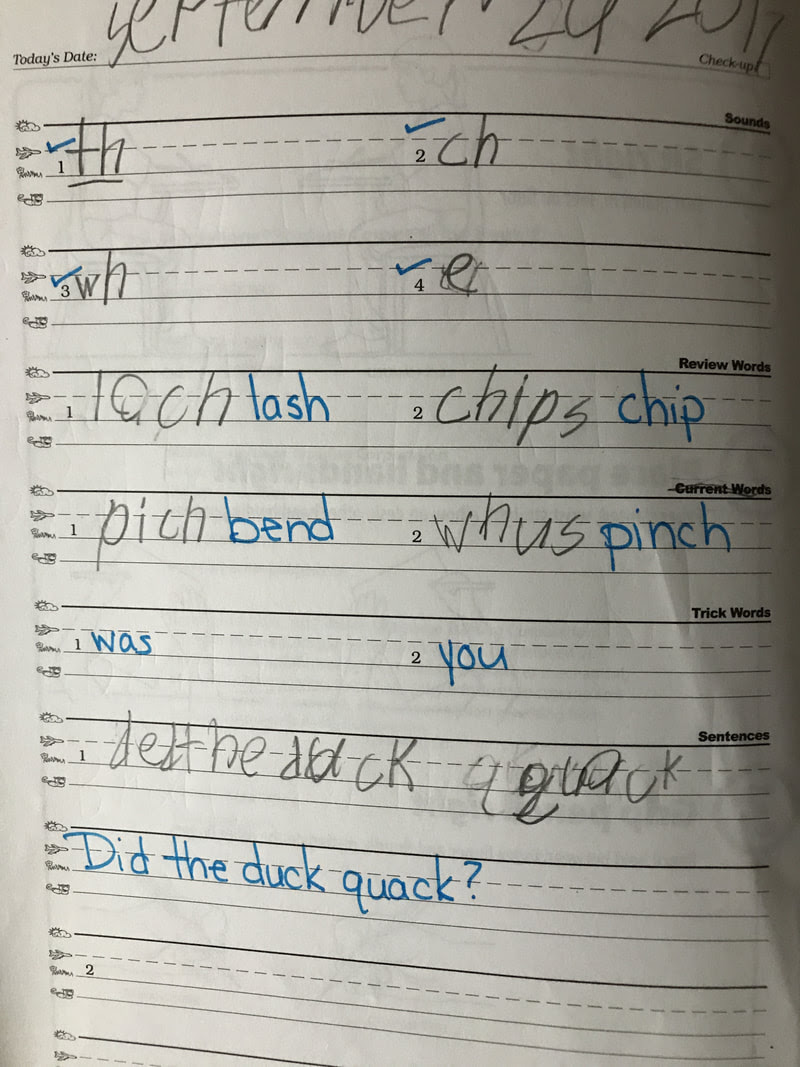 September 20 2017
Today's Date:
Check-up
Sounds
1 th 2 ch
3 wh 4 e
Review Words
1 lach lash 2 chips chip
Current Words
1 pich bend 2 whus pinch
Trick Words
1 was 2 you
Sentences
1 the duck quack
Did the duck quack?
2